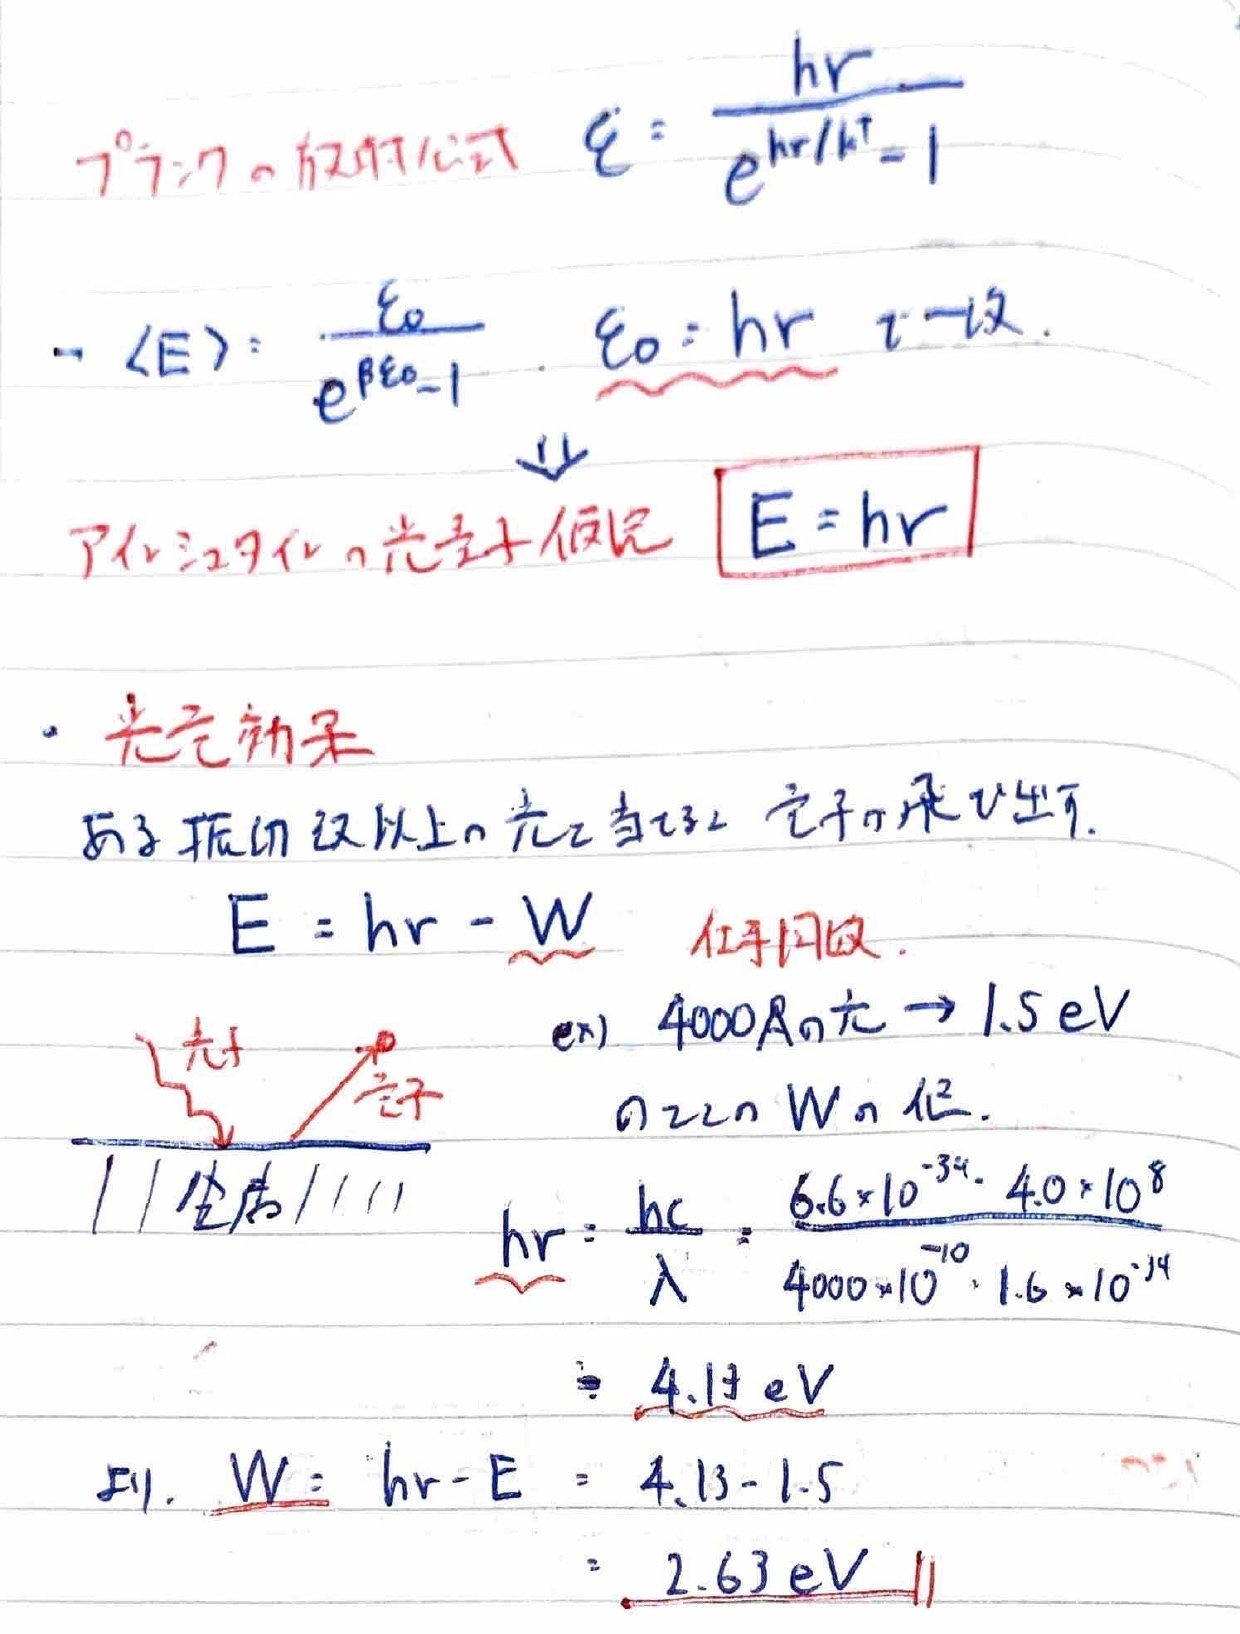 プランクの放射公式 ε = hν / (e^{hν/kT} - 1)
→ <E> = ε₀ / (e^{βε₀} - 1) . ε₀ = hν で一致.
⇓
アインシュタインの光量子仮説 E = hν
・光電効果
ある振動数以上の光を当てると 電子が飛び出す.
E = hν - W 仕事関数.
光子 電子 金属
ex) 4000Åの光 → 1.5eV
のときの Wの値.
hν = hc / λ = 6.6×10^{-34} · 4.0×10^{8} / 4000×10^{-10} · 1.6×10^{-19}
≒ 4.13 eV
より. W = hν - E = 4.13 - 1.5
= 2.63 eV